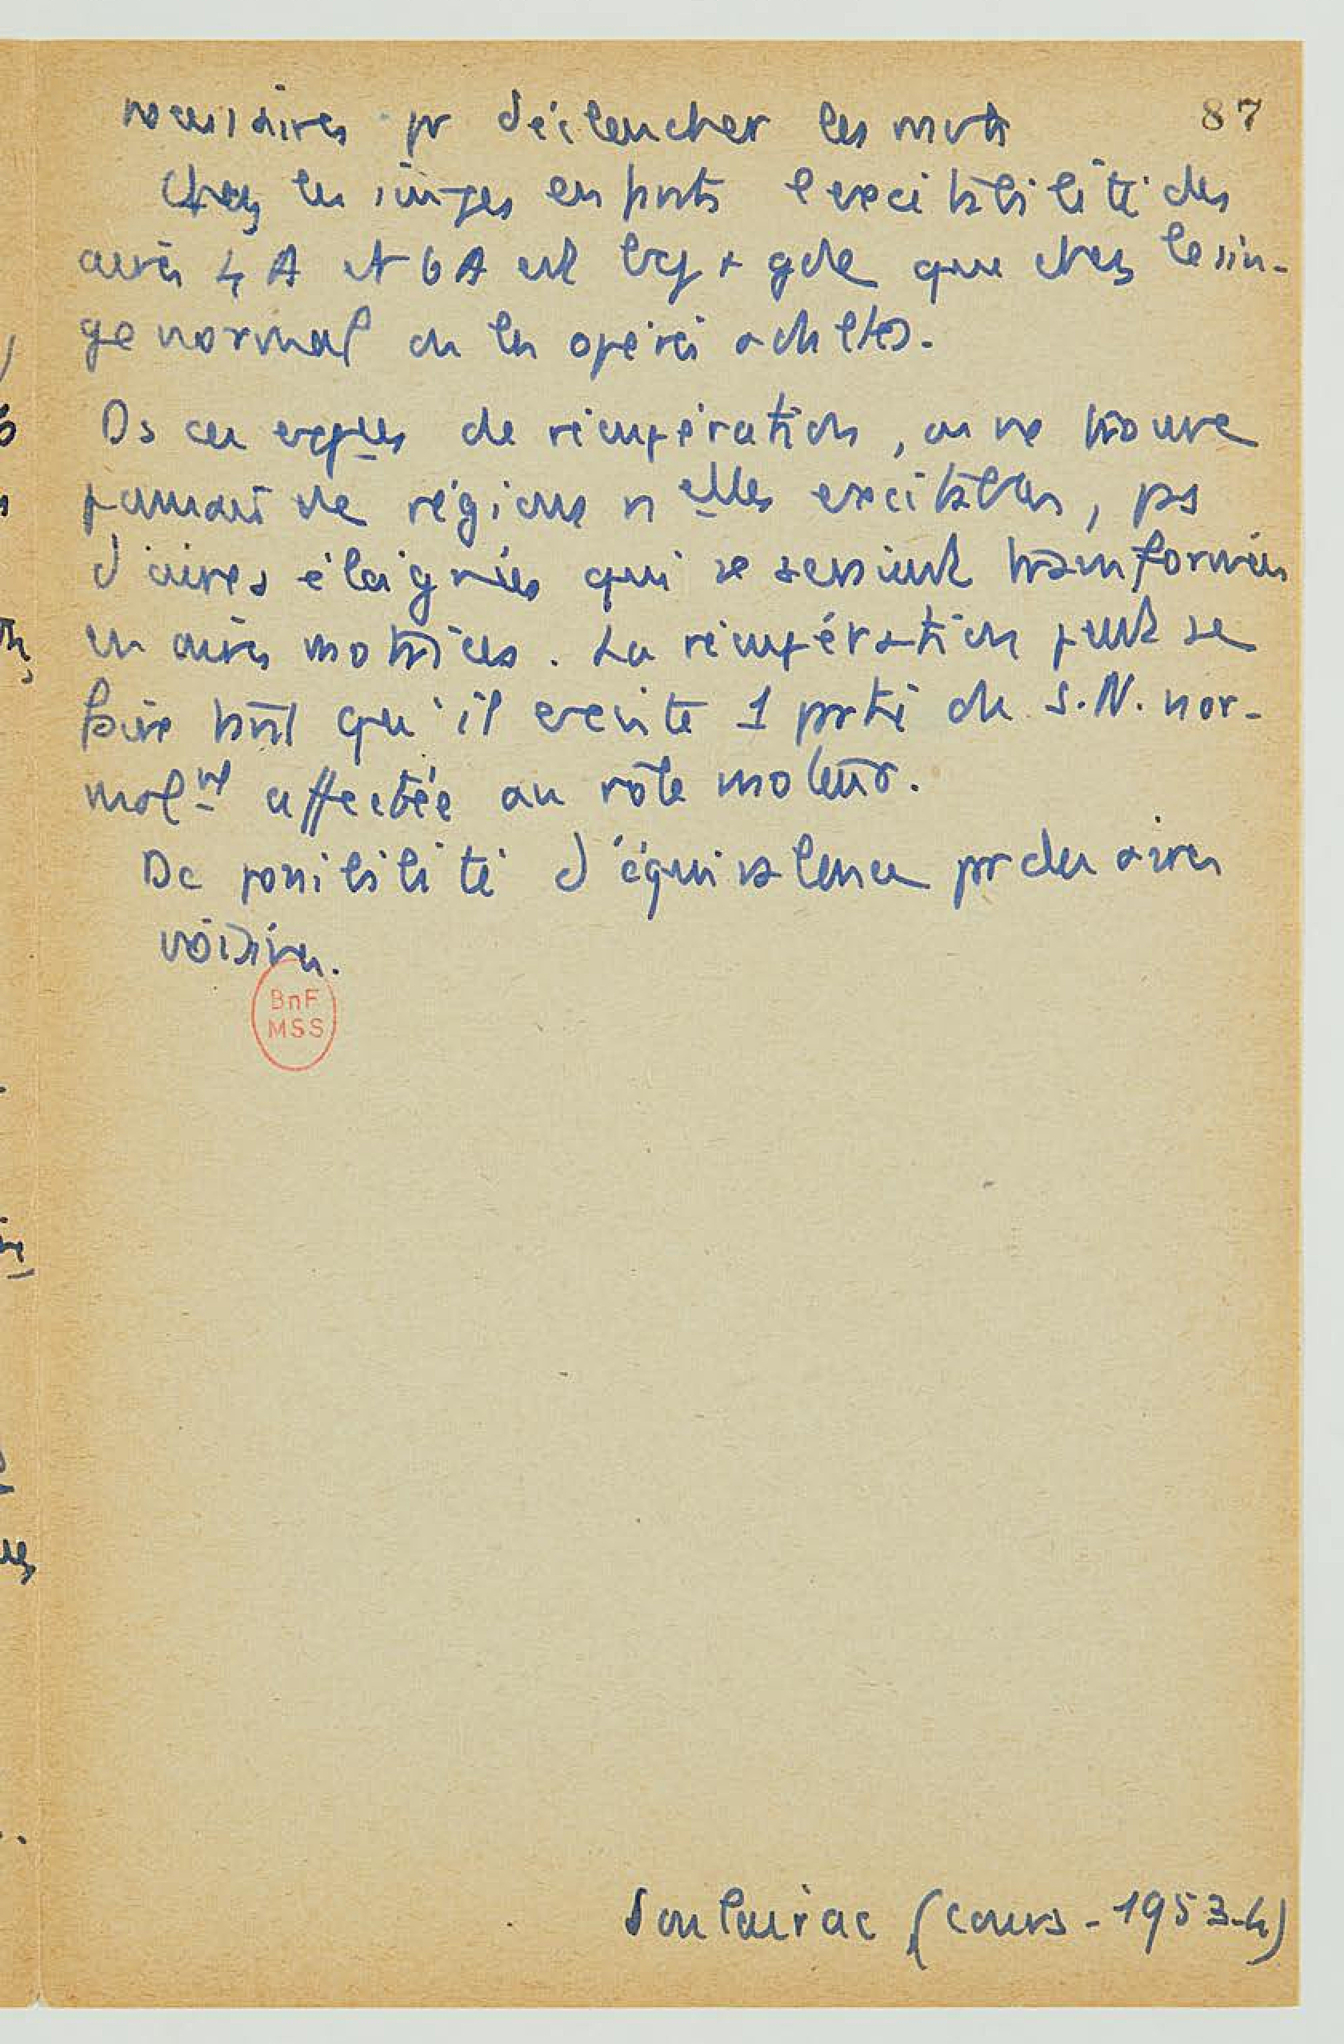 87
nécessaires pr déclencher les mvts
Chez les singes enfants l'excitabilité des
aires 4 A et 6 A est bcp + gde que chez le sin-
ge normal ou les opérés adultes.
Ds ces expces de récupération, on ne trouve
jamais de régions nelles excitables, pas
d'aires éloignées qui se seraient transformées
en aires motrices. La récupération peut se
faire tant qu'il existe 1 partie du S.N. nor-
malmt affectée au rôle moteur.
Dc possibilité d'équivalence pr des aires
voisines.
BnF
MSS
Soulairac (cours - 1953-4)